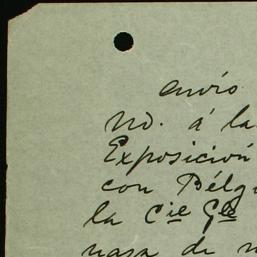 envío
Nd. á la
Exposición
con Bélgi
la Cie Gle
para de